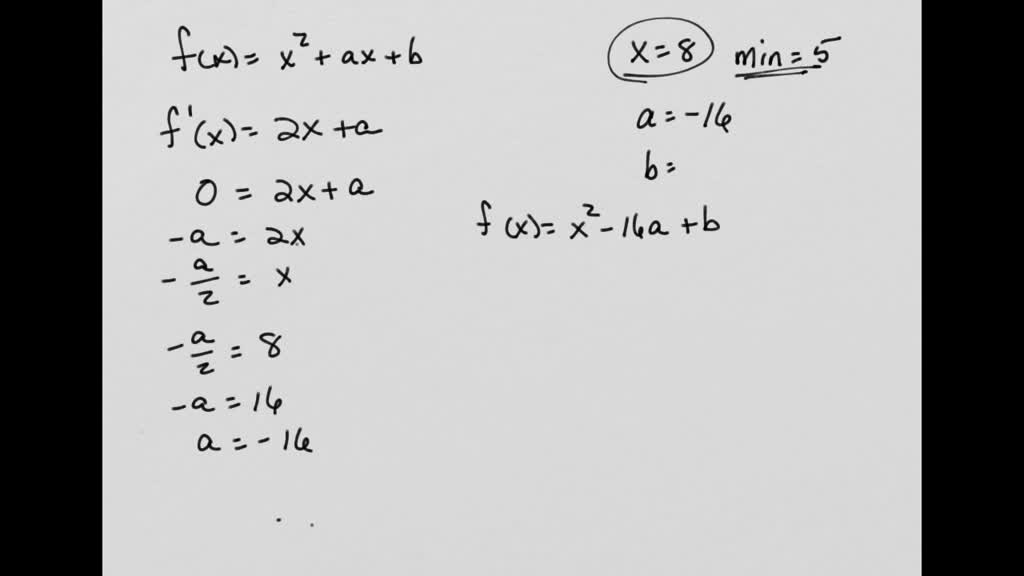 f(x) = x² + ax + b
f'(x) = 2x + a
0 = 2x + a
-a = 2x
-a/2 = x
-a/2 = 8
-a = 16
a = -16
x = 8 min = 5
a = -16
b =
f(x) = x² - 16a + b